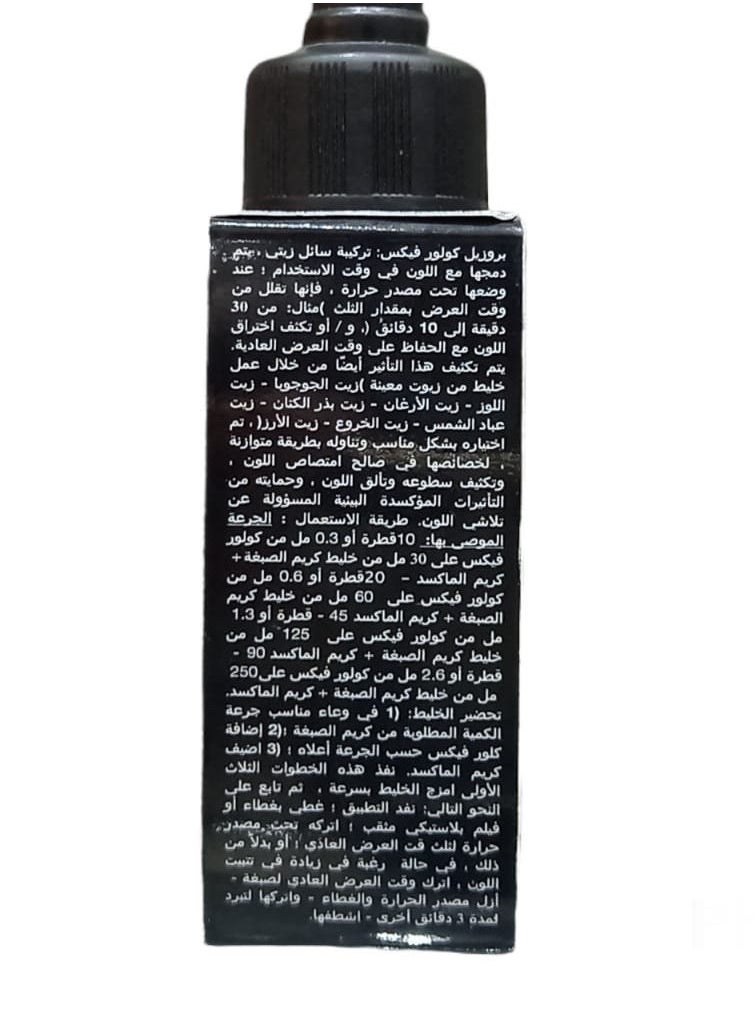 بروزيل كولور فيكس: تركيبة سائل زيتي ، يتم
دمجها مع اللون في وقت الاستخدام ؛ عند
وضعها تحت مصدر حرارة ، فإنها تقلل من
وقت العرض بمقدار الثلث )مثال: من 30
دقيقة إلى 10 دقائق (، و / أو تكثف اختراق
اللون مع الحفاظ على وقت العرض العادية.
يتم تكثيف هذا التأثير أيضًا من خلال عمل
خليط من زيوت معينة )زيت الجوجوبا - زيت
اللوز - زيت الأرغان - زيت بذر الكتان - زيت
عباد الشمس - زيت الخروع - زيت الأرز(، تم
اختياره بشكل مناسب وتناوله بطريقة متوازنة
، لخصائصها في صالح امتصاص اللون ،
وتكثيف سطوعه وتألق اللون ، وحمايته من
التأثيرات المؤكسدة البيئية المسؤولة عن
تلاشي اللون. طريقة الاستعمال : الجرعة
الموصى بها: 10قطرة أو 0.3 مل من كولور
فيكس على 30 مل من خليط كريم الصبغة +
كريم الماكسد - 20قطرة أو 0.6 مل من
كولور فيكس على 60 مل من خليط كريم
الصبغة + كريم الماكسد 45 - قطرة أو 1.3
مل من كولور فيكس على 125 مل من
خليط كريم الصبغة + كريم الماكسد 90 -
قطرة أو 2.6 مل من كولور فيكس على250
مل من خليط كريم الصبغة + كريم الماكسد.
تحضير الخليط: (1 في وعاء مناسب جرعة
الكمية المطلوبة من كريم الصبغة ؛(2 إضافة
كلور فيكس حسب الجرعة أعلاه ؛ (3 اضيف
كريم الماكسد. نفذ هذه الخطوات الثلاث
الأولى امزج الخليط بسرعة ، ثم تابع على
النحو التالي: نفد التطبيق ؛ غطي بغطاء أو
فيلم بلاستيكي مثقب ؛ اتركه تحت مصدر
حرارة لثلث قت العرض العاذي ؛ أو بدلاً من
ذلك ، في حالة رغبة في زيادة في تتبيت
اللون ، اترك وقت العرض العادي لصبغة -
أزل مصدر الحرارة والغطاء - واتركها لتبرد
لمدة 3 دقائق أخرى - اشطفها.